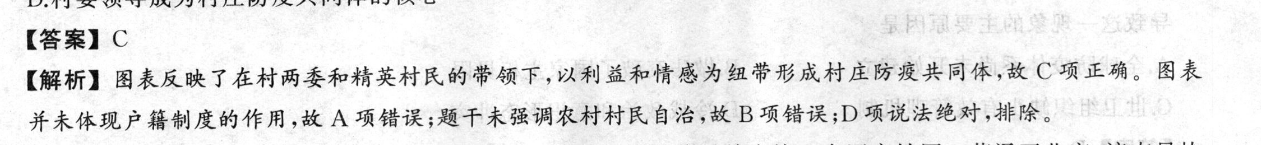 D.村委领导成为村庄防疫共同体的核心
【答案】C
【解析】图表反映了在村两委和精英村民的带领下,以利益和情感为纽带形成村庄防疫共同体,故C项正确。图表
并未体现户籍制度的作用,故A项错误;题干未强调农村村民自治,故B项错误;D项说法绝对,排除。